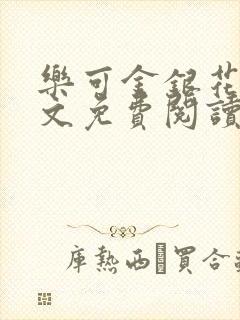 樂可金銀花
文免費閱讀
庫熱西·買合